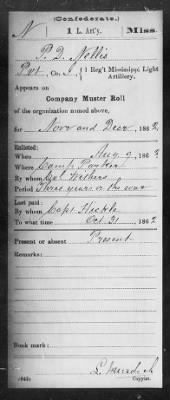 (Confederate.)
N 1 L. Art'y. Miss.
P. D. Nellis
Pvt, Co. I, 1 Reg't Mississippi Light Artillery.
Appears on
Company Muster Roll
of the organization named above,
for Nov and Dec, 1862
Enlisted:
When Aug 9, 1862
Where Camp
By whom Col Withers
Period Three years or the war
Last paid:
By whom Capt
To what time Oct 31, 1862
Present or absent Present
Remarks:
Book mark:
Copyist.